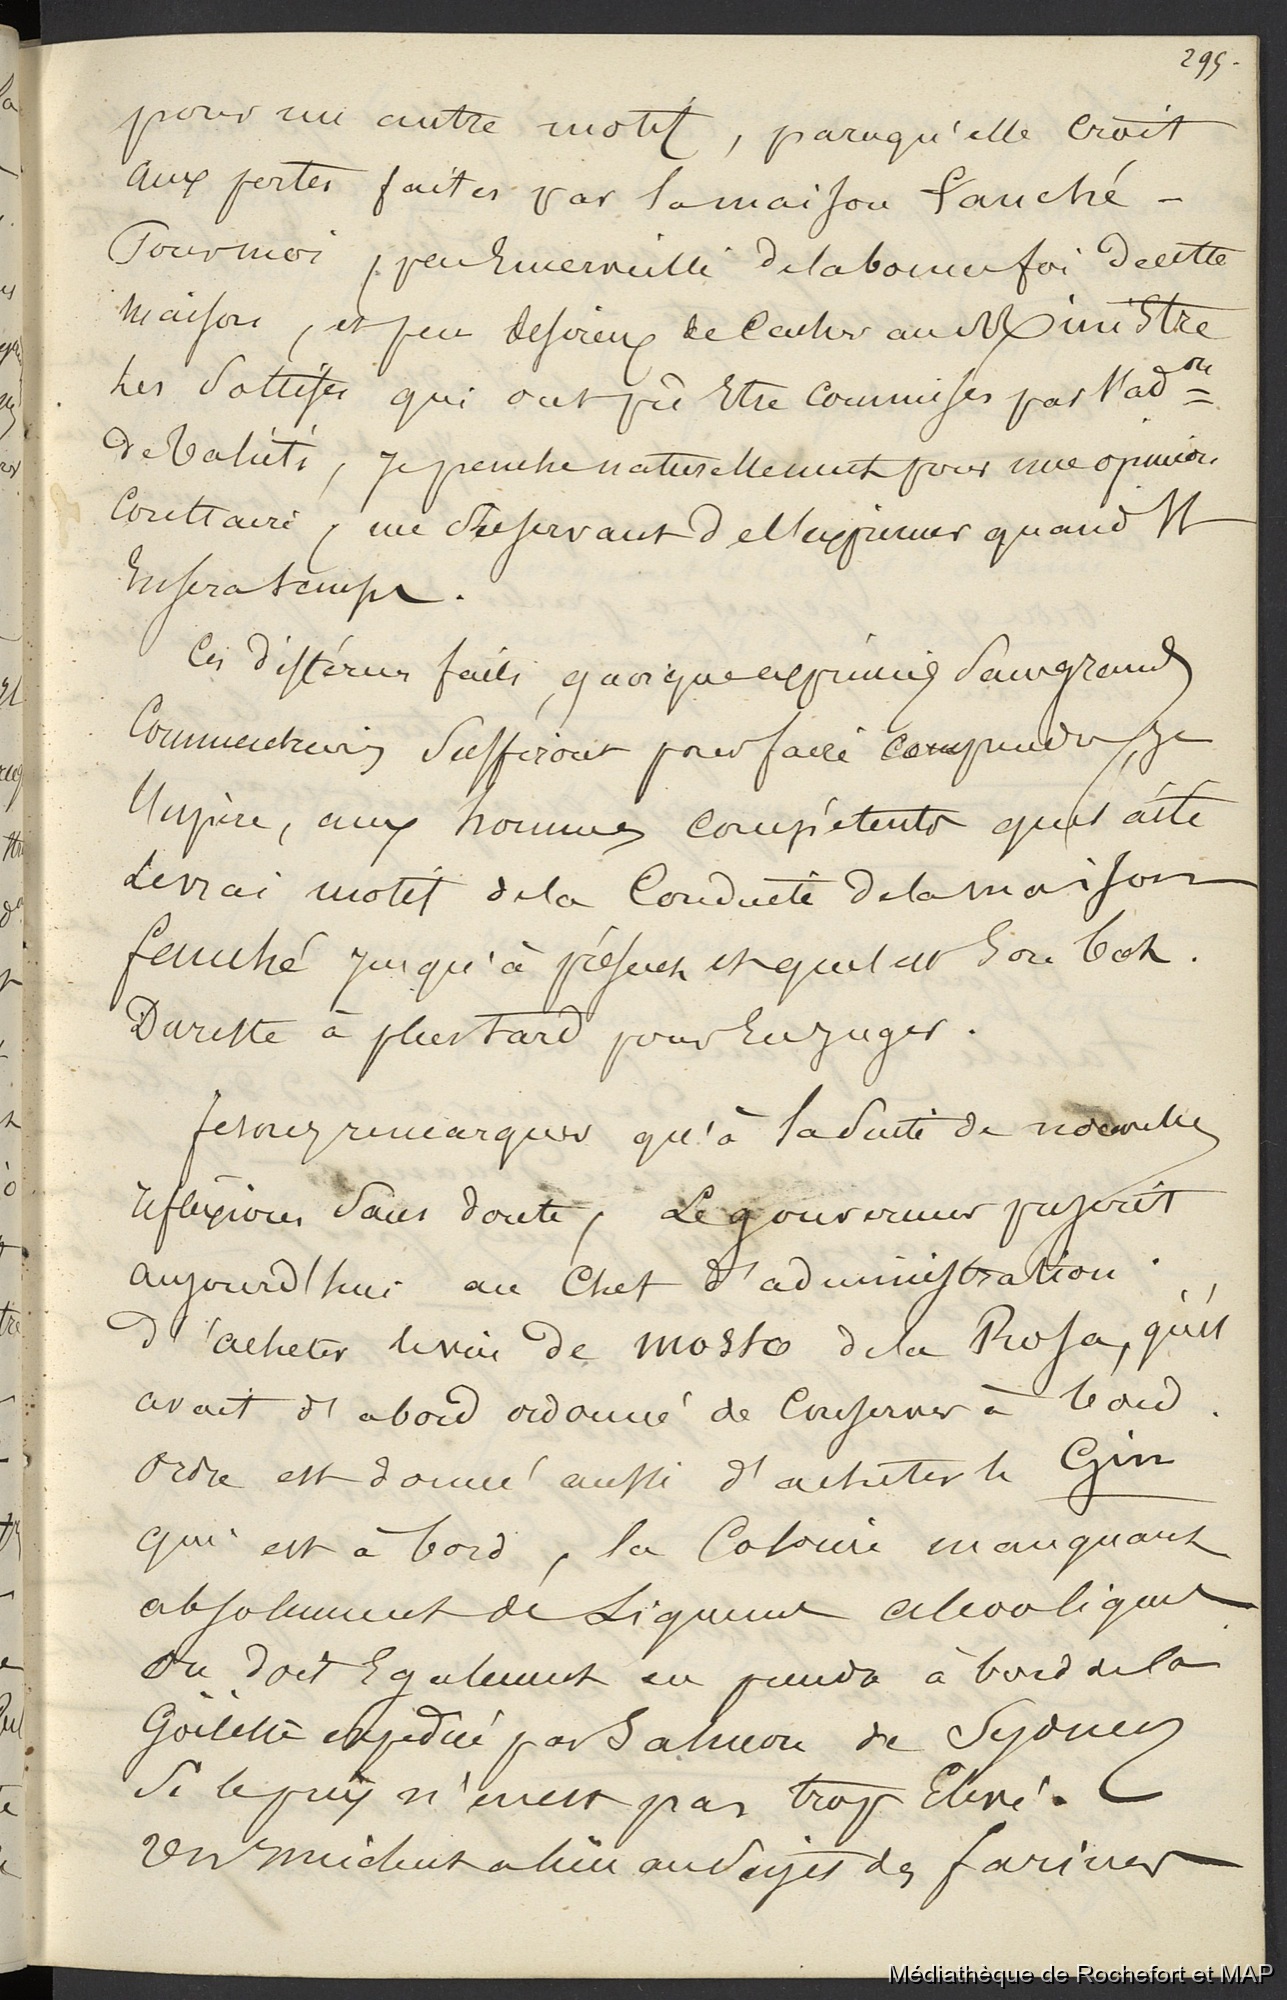 295.
pour un autre motif, parcequ'elle croit
aux pertes faites par la maison fauché –
Pour moi, peu Emerveillé de la bonne foi de cette
maison, et peu desireux de cacher au Ministre
les sottises qui ont pu Etre commises par l'ad.on
de Tahiti, je penche naturellement pour une opinion
contraire, me réservant de l'exprimer quand il
En sera temps.
Ces différens faits, quoique exprimés sans grands
Commentaires suffiront pour faire comprendre, je
l'espère, aux hommes compétents quel a été
le vrai motif de la conduite de la maison
fauché jusqu'à présent et quel est son but.
Du reste à plus tard pour En juger.
Je vous remarquer qu'à la suite de nouvelles
réflexions sans doute, Le gouverneur prescrit
aujourd'hui au Chef d'administration
d'acheter le vin de mosto de la Rosa, qu'il
avait d'abord ordonné de conserver à bord.
ordre est donné aussi d'acheter le Gin
qui est à bord, la Colonie manquant
absolument de Liqueurs alcooliques
on doit Egalement en prendre à bord de la
Goëlette expédiée par Salmon de Sydney
si le prix n'en est pas trop Elevé.
un incident a lieu au sujet des farines